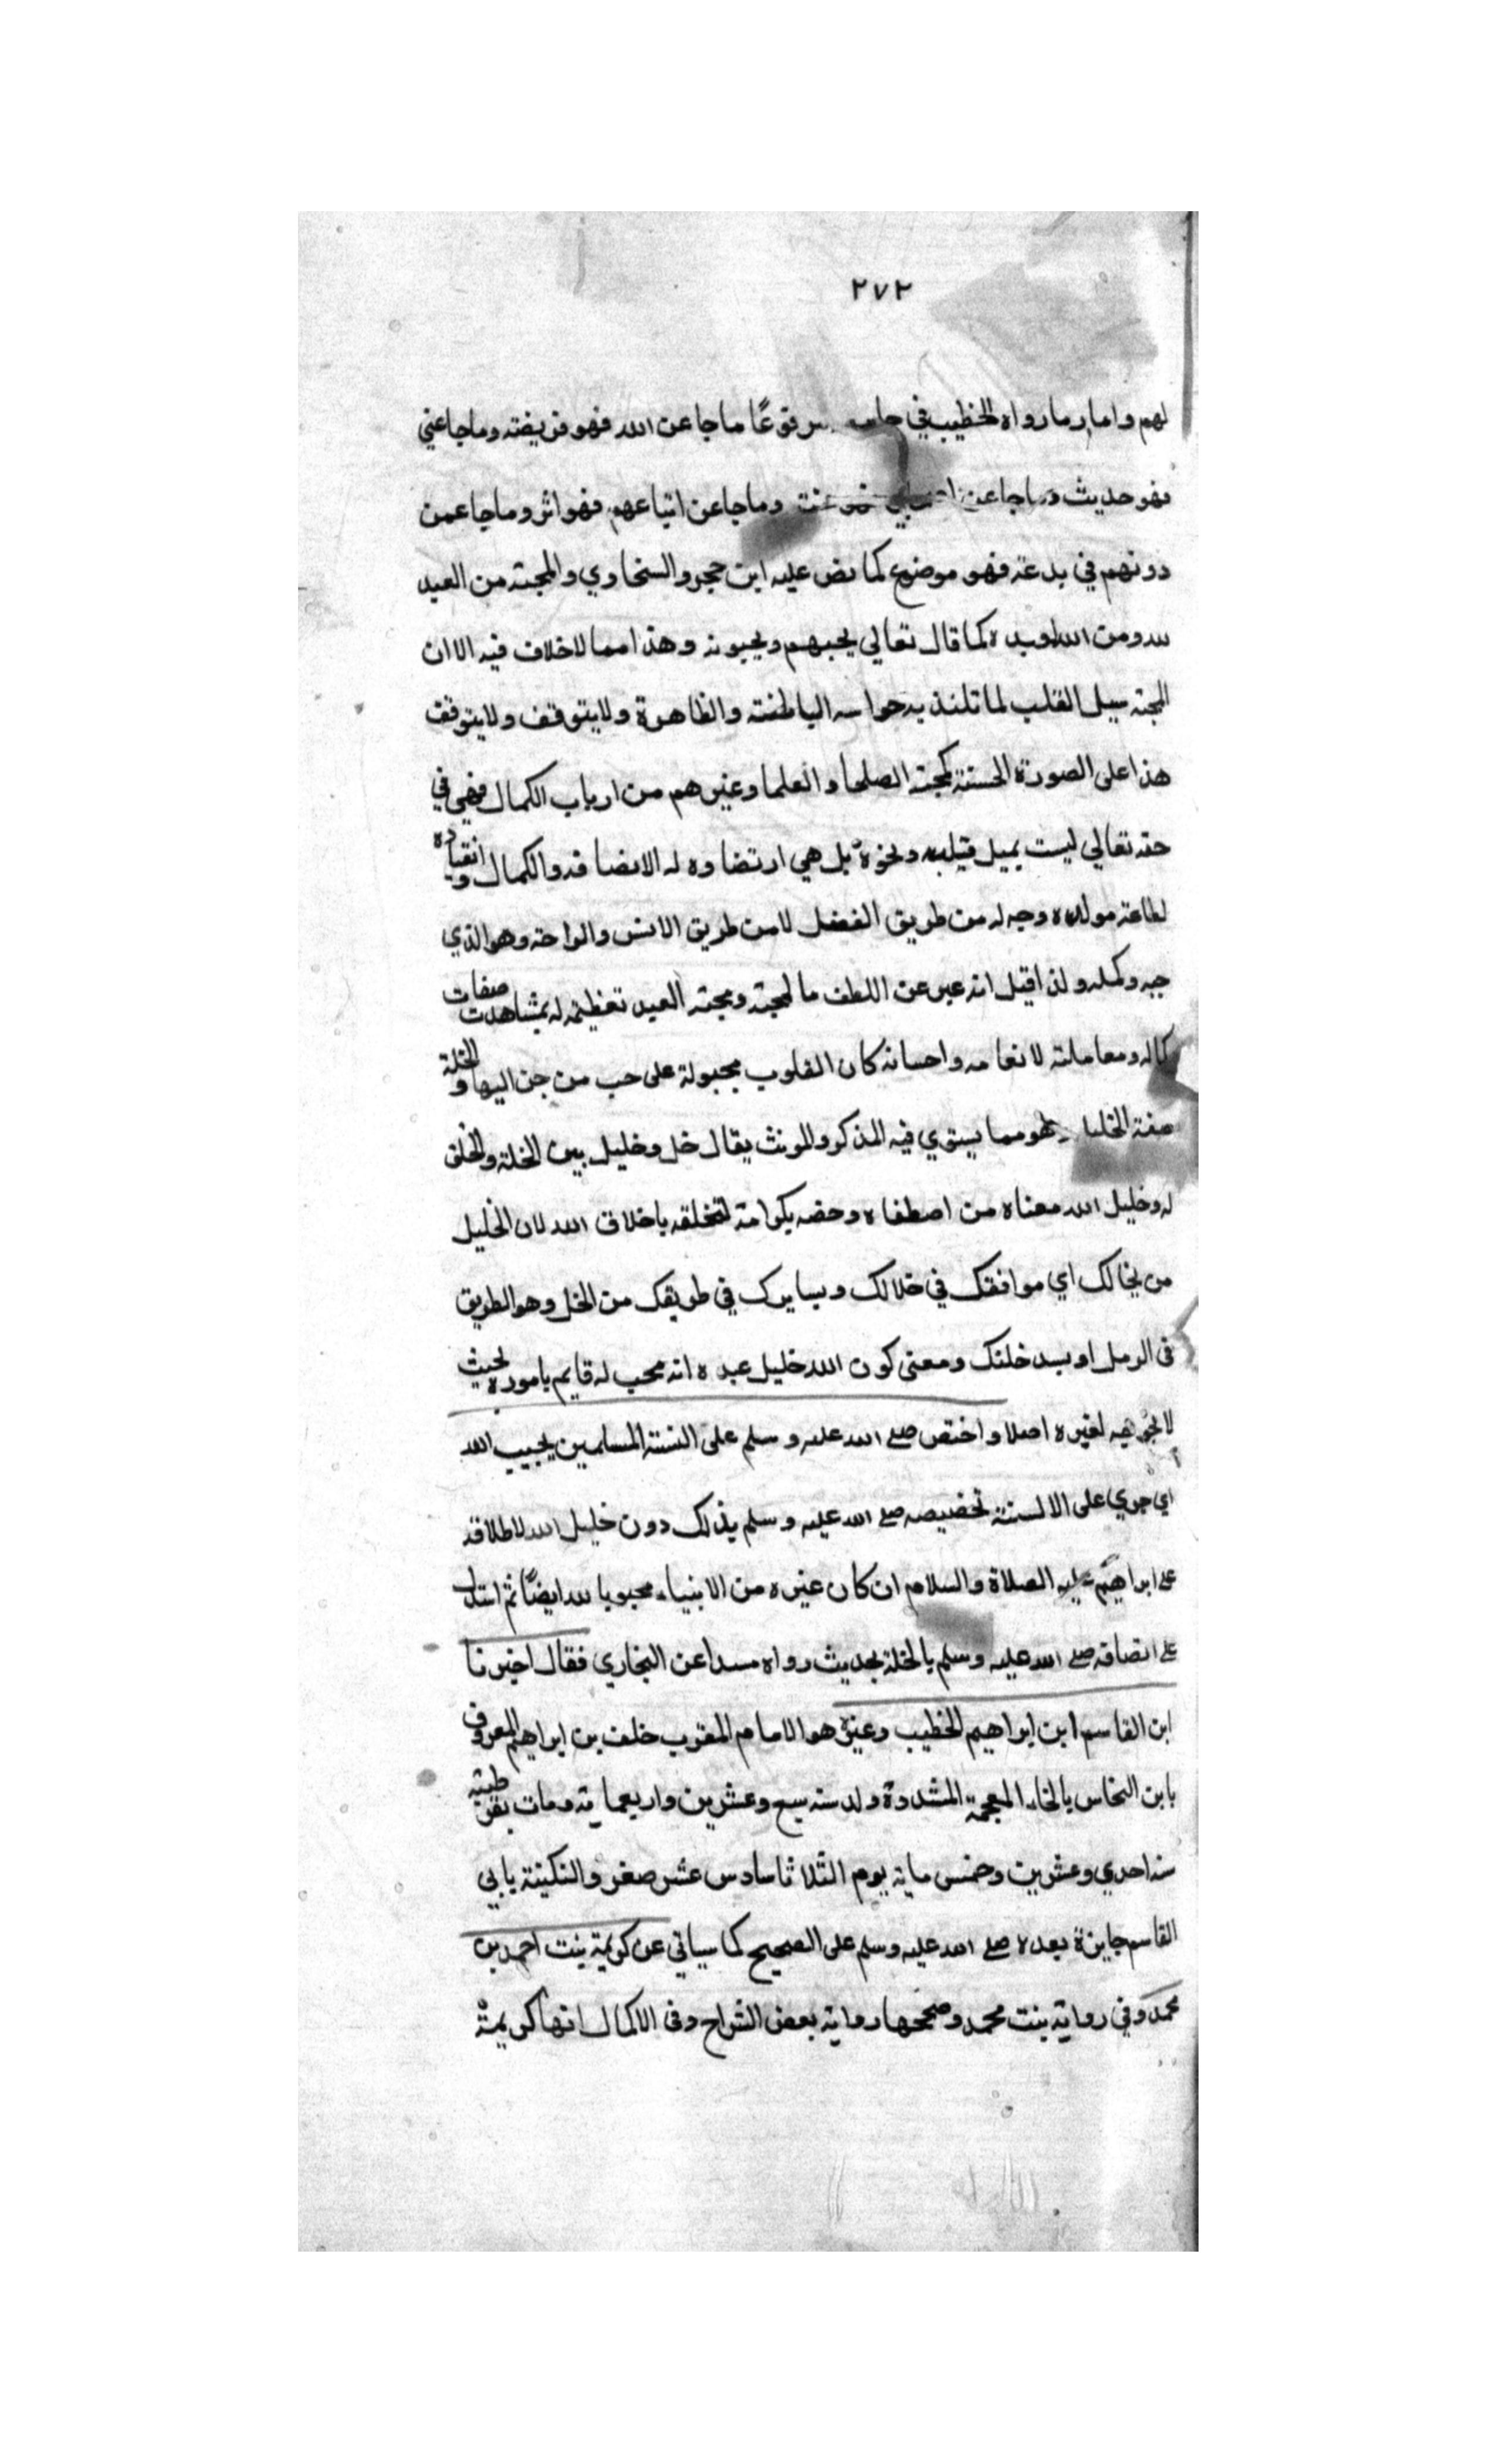 ٢٧٢
لهم واما ما رواه الخطيب في جامعه مرفوعًا ماجا عن الله فهو فريضة وماجا عني
فهو حديث وماجا عن اصحابي فهو سنة وماجا عن اتباعهم فهو اثر وماجا عمن
دونهم في بدعة فهو موضوع كما نص عليه ابن حجر والسخاوي والمحبة من العبد
لله ومن الله لعبده كما قال تعالي يحبهم ويحبونه وهذا مما لا خلاف فيه الا ان
المحبة ميل القلب لما تلتذ به حواسه الباطنة والظاهرة ولا يتوقف ولا يتوقف
هذا على الصورة الحسنة كمحبة الصلحا والعلما وغيرهم من ارباب الكمال فهي في
حقه تعالي ليست بميل قلبه ونحوه بل هي ارتضاوه له الانصافه والكمال وانقياده
لطاعة مولاه وحبه له من طريق الفضل لا من طريق الانس والراحة وهو الذي
حبه وكمله ولذا قيل انه عبر عن اللطف بالمحبة ومحبة العبد تعظيمه له بمشاهدت صفات
كماله ومعاملته لانعامه واحسانه كان القلوب مجبولة على حب من حن اليها والخلة
صفة الخليل وهو مما يستوي فيه المذكر والمونث يقال خل وخليل بين الخلة والخلق
له وخليل الله معناه من اصطفاه وخصه بكرامة لتخلقه باخلاق الله لان الخليل
من يخالك اي موافقك في خلالك ويسايرك في طريقك من الخل وهو الطريق
في الرمل او يسد خلتك ومعنى كون الله خليل عبده انه محب له قايم باموره بحيث
لا لغيره اصلا واختص صلى الله عليه وسلم على السنة المسلمين بحبيب الله
اي جري على الالسنة تخصيصه صلى الله عليه وسلم بذلك دون خليل الله لاطلاقه
على ابراهيم عليه الصلاة والسلام ان كان غيره من الانبياء محبوبا لله ايضًا ثم استدل
على اتصافه صلى الله عليه وسلم بالخلة بحديث رواه مسندا عن البخاري فقال اخبرنا
ابن القاسم ابن ابراهيم الخطيب وغيره هو الامام المقري خلف بن ابراهيم المعروف
بابن النخاس بالخاء المعجمة المشددة ولد سنه سبع وعشرين واربعماية ومات بقرطبة
سنه احدي وعشرين وخمس ماية يوم الثلاثا سادس عشر صفر والتكنية بابي
القاسم جايزة بعده صلى الله عليه وسلم على الصحيح كما سياتي عن كريمة بنت احمد بن
محمد وفي رواية بنت محمد وصححها رواية بعض الشراح وفي الاكمال انها كريمة